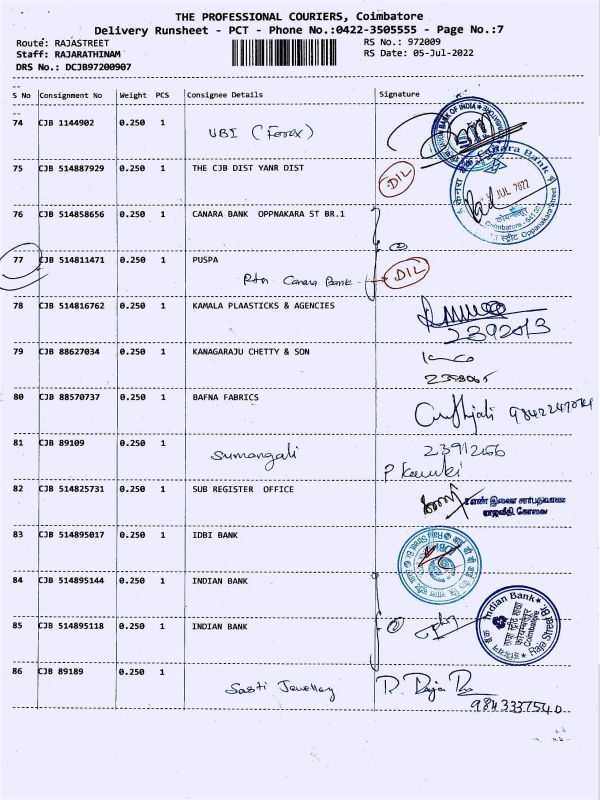 THE PROFESSIONAL COURIERS, Coimbatore
Delivery Runsheet - PCT - Phone No.:0422-3505555 - Page No.:7
Route: RAJASTREET
RS No.: 972009
Staff: RAJARATHINAM
RS Date: 05-Jul-2022
DRS No.: DCJB97200907
S No Consignment No Weight PCS Consignee Details Signature
74 CJB 1144902 0.250 1
UBI (Forex)
75 CJB 514887929 0.250 1 THE CJB DIST YANR DIST
DIL
JUL 2022
76 CJB 514858656 0.250 1 CANARA BANK OPPNAKARA ST BR.1
77 CJB 514811471 0.250 1 PUSPA
Rtn Canara Bank
DIL
78 CJB 514816762 0.250 1 KAMALA PLAASTICKS & AGENCIES
2392013
79 CJB 88627034 0.250 1 KANAGARAJU CHETTY & SON
80 CJB 88570737 0.250 1 BAFNA FABRICS
81 CJB 89109 0.250 1
Sumangali
82 CJB 514825731 0.250 1 SUB REGISTER OFFICE
83 CJB 514895017 0.250 1 IDBI BANK
84 CJB 514895144 0.250 1 INDIAN BANK
Indian Bank
85 CJB 514895118 0.250 1 INDIAN BANK
86 CJB 89189 0.250 1
Sasti Jewellery
9843337540